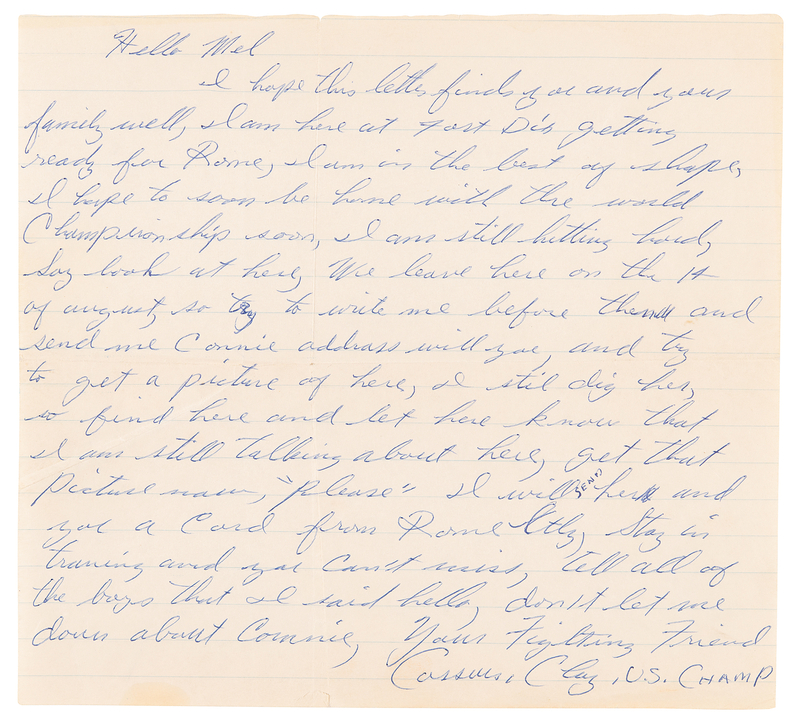 Hello Mel
I hope this letter finds you and your
family well, I am here at Fort Dix getting
ready for Rome, I am in the best of shape,
I hope to soon be home with the world
Championship soon, I am still hitting hard,
Say look at here, We leave here on the 14
of august, so try to write me before then and
send me Connie address will you, and try
to get a picture of here, I stil dig her,
so find here and let here know that
I am still talking about here, get that
picture now, "please" I will SEND her and
you a Card from Rome Itly, Stay in
traning and you can't miss, tell all of
the boys that I said hello, don't let me
down about Connie, Your Fighting Friend
Cassius, Clay, U.S. CHAMP